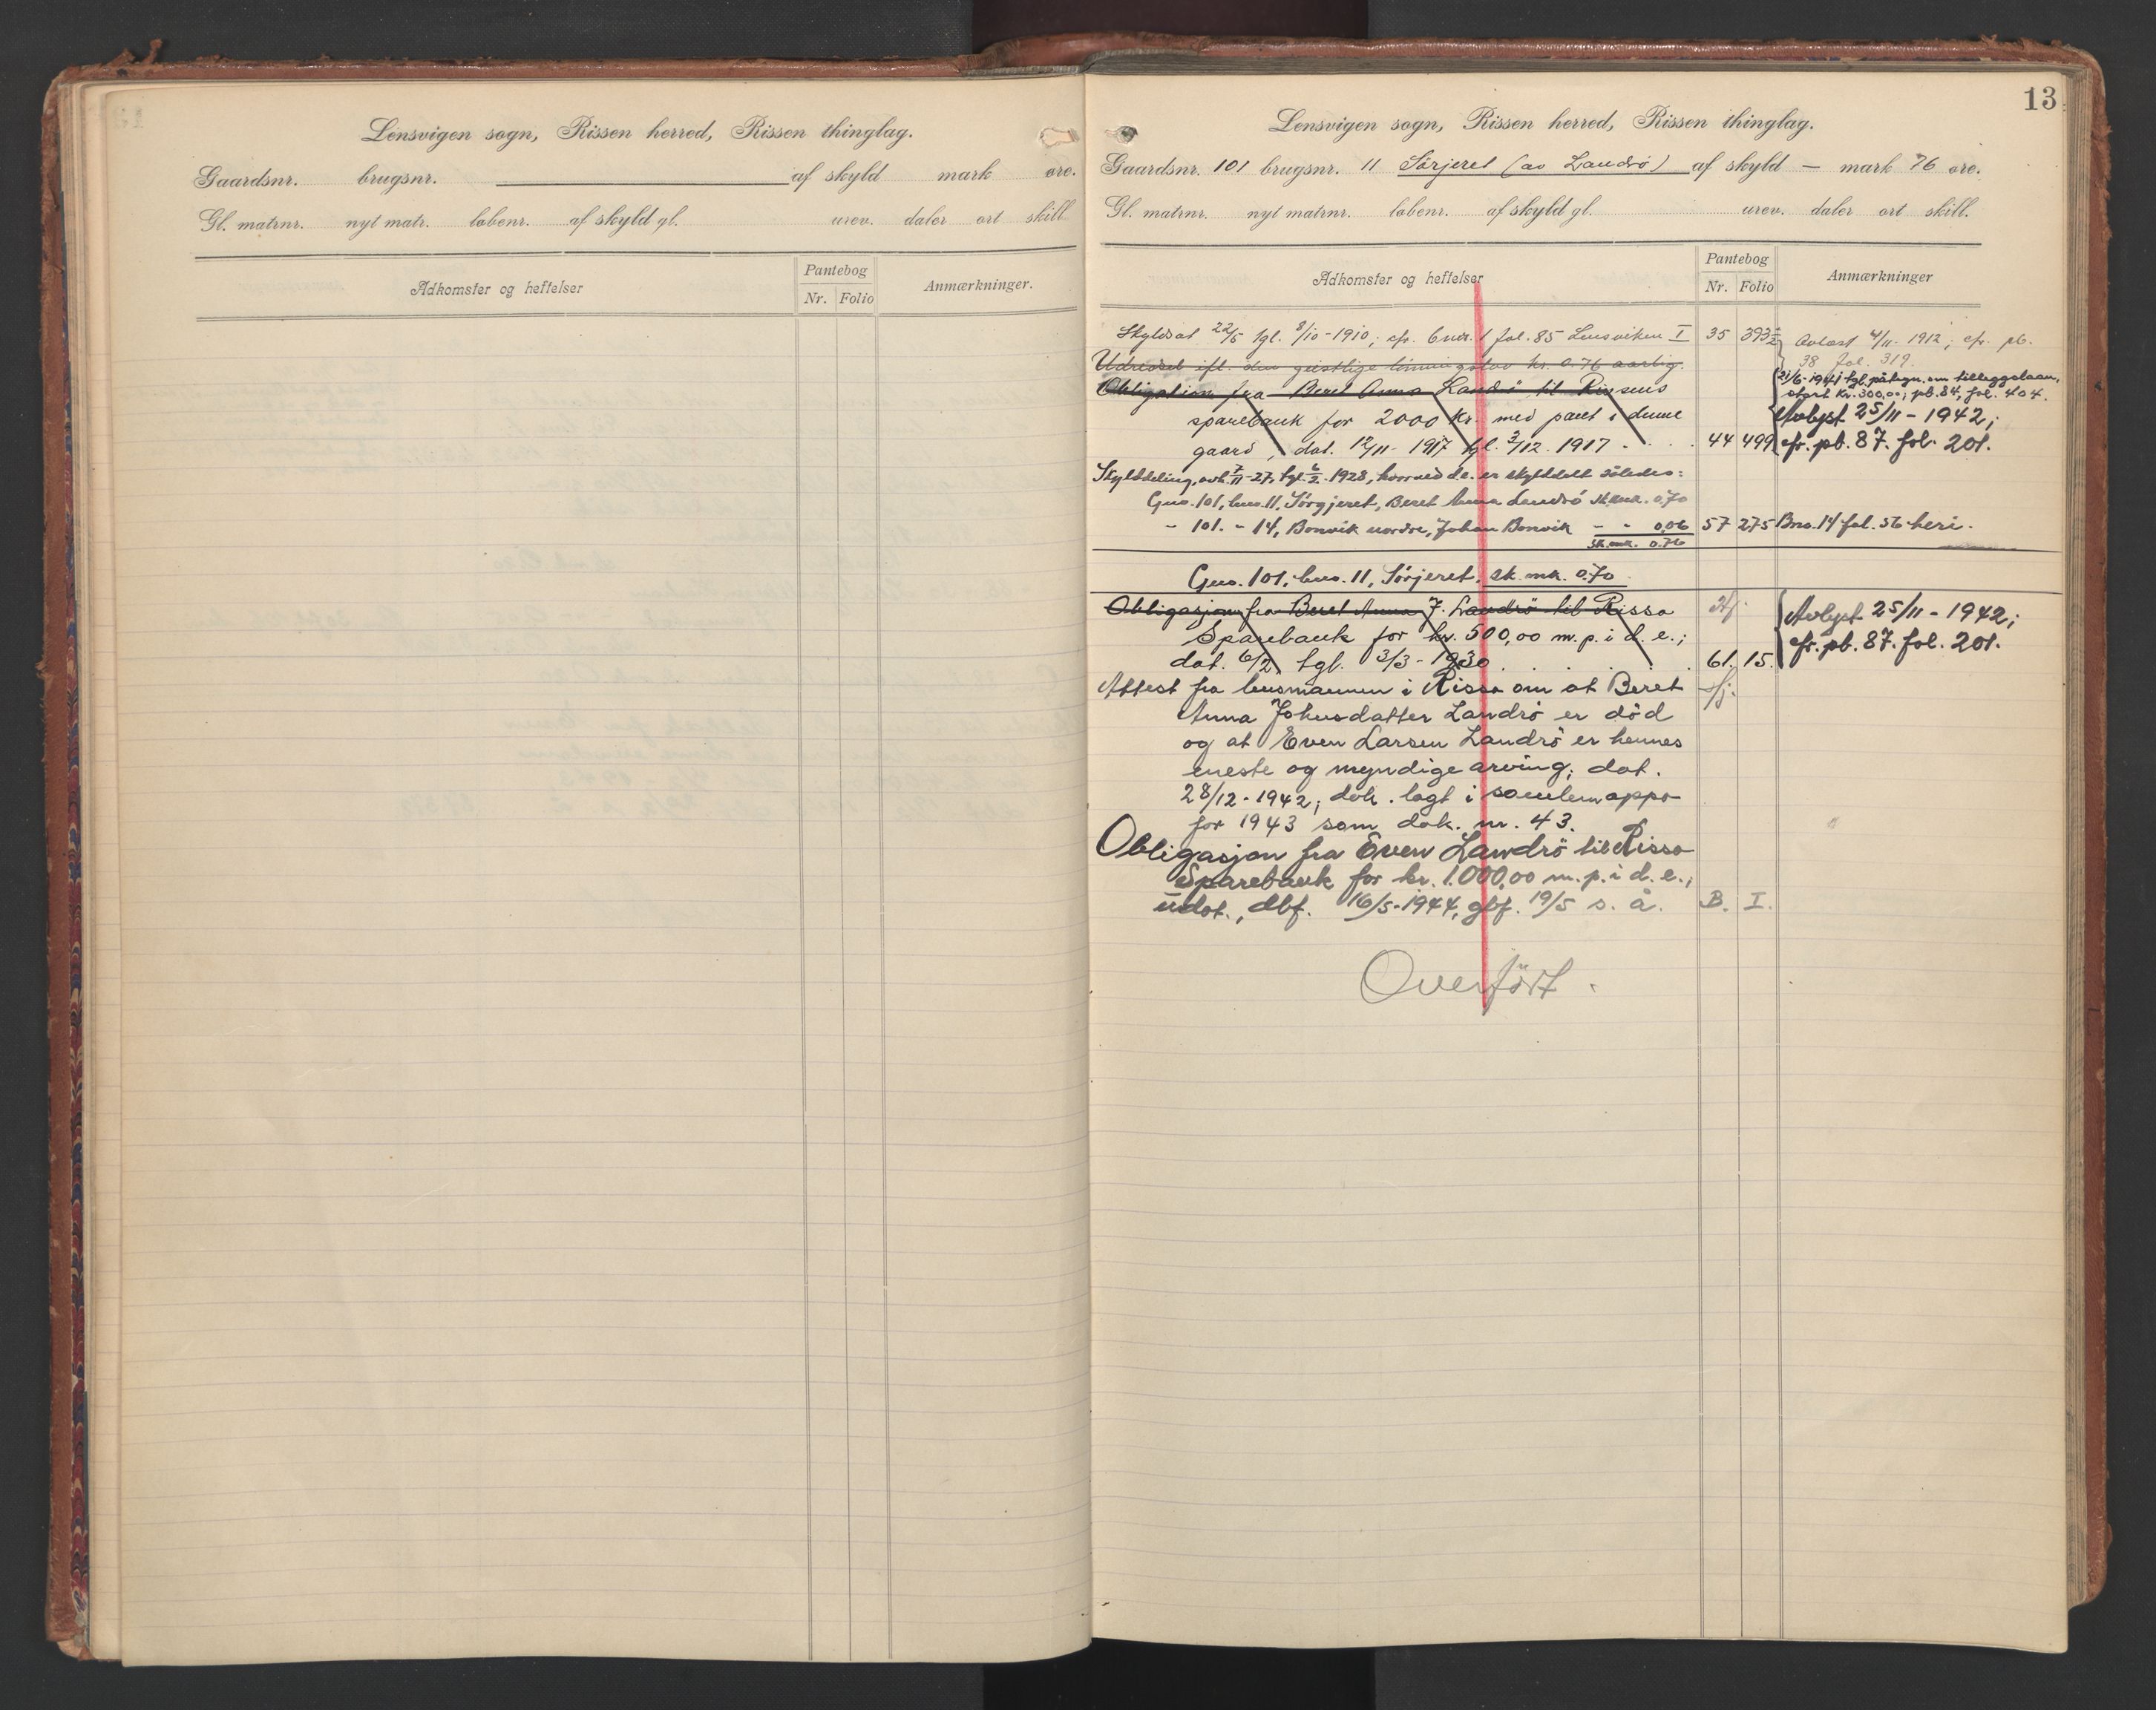 Lensvigen sogn, Rissen herred, Rissen thinglag.
Gaardsnr. brugsnr. af skyld mark øre.
Gl. matrnr. nyt matr. løbenr. af skyld gl. urev. daler ort skill
Adkomster og heftelser
Pantebog
Nr. Folio
Anmærkninger.
13
Lensvigen sogn, Rissen herred, Rissen thinglag.
Gaardsnr. 101 brugsnr. 11 Sörjeret (av Landrö) af skyld — mark 76 øre.
Gl. matrnr. nyt matrnr. løbenr. af skyld gl. urev. daler ort skill.
Adkomster og heftelser
Pantebog
Nr. Folio
Anmærkninger
Skyldsat 22/5 tgl. 8/10-1910; cfr. bnr. 1 fol. 85 Lensviken I 35 393
Avløst 4/11. 1912; cfr. pb.
38 fol. 319.
Udredet ifl. den geistlige lønningslov kr. 0.76 aarlig.
Obligation fra Beret Anna Landrö til Rissens
21/6-1941 tgl. påtegn. om tilleggslaan,
stort kr. 300,00; pb. 84, fol. 404.
sparebank for 2000 Kr. med pant i denne
Avlyst 25/11-1942;
gaard, dat. 12/11-1917 tgl. 3/12. 1917 . . . 44 499
cfr. pb. 87. fol. 201.
Skylddeling, avh. 7/11-27, tgl. 6/2. 1928, hvorved d.e. er skylddelt således:
Gno. 101, bno. 11, Sörgjeret, Beret Anna Landrö Sk.mrk. 0.70
" 101. " 14, Bonvik nordre, Johan Bonvik " " 0.06 57 275 Bno. 14 fol. 56 heri.
Sk.mrk. 0.76
Gno. 101, bno. 11, Sörjeret, sk. mrk. 0.70
Obligasjon fra Beret Anna J. Landrö til Rissa
Avlyst 25/11-1942;
Sparebank for kr. 500,00 m.p. i d. e.;
cfr. pb. 87. fol. 201.
dat. 6/2, tgl. 3/3-1930 . . . . . 61. 15.
Attest fra lensmannen i Rissa om at Beret
Anna Johnsdatter Landrö er död
og at Even Larsen Landrö er hennes
eneste og myndige arving; dat.
28/12-1942; dok. lagt i
for 1943 som dok. nr. 43.
Obligasjon fra Even Landrö til Rissa
Sparebank for kr. 1.000,00 m.p. i d. e.;
udat., dbf. 16/5-1944, gbf. 19/5 s. å. B. I.
Overfört.